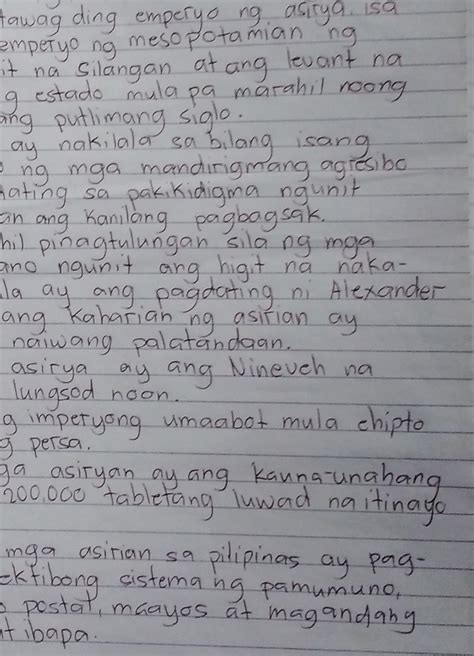 tawag ding emperyo ng asirya, isa
emperyo ng mesopotamian ng
it na silangan at ang levant na
g estado mula pa marahil noong
ang putlimang siglo.
ay nakilala sa bilang isang
ng mga mandirigmang agresibo
ating sa pakikidigma ngunit
an ang kanilang pagbagsak.
hil pinagtulungan sila ng mga
ano ngunit ang higit na naka-
la ay ang pagdating ni Alexander
ang kaharian ng asirian ay
naiwang palatandaan.
asirya ay ang Nineveh na
lungsod noon.
g imperyong umaabot mula ehipto
g persa.
ga asiryan ay ang kauna-unahang
200,000 tabletang luwad na itinago
mga asirian sa pilipinas ay pag-
ektibong sistema ng pamumuno,
postal, maayos at magandang
t ibapa.